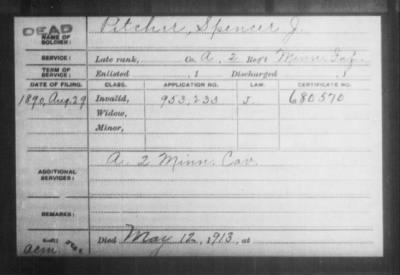 DEAD
NAME OF SOLDIER: Pitcher, Spencer J.
SERVICE: Late rank, Co. A, 2 Reg't Minn. Inf.
TERM OF SERVICE: Enlisted , 1 Discharged , 1
DATE OF FILING. CLASS. APPLICATION NO. LAW. CERTIFICATE NO.
1890, Aug. 29 Invalid, 953,233 J. 680570
Widow,
Minor,
ADDITIONAL SERVICES: A. 2 Minn. Cav.
REMARKS:
Died May 12, 1913, at